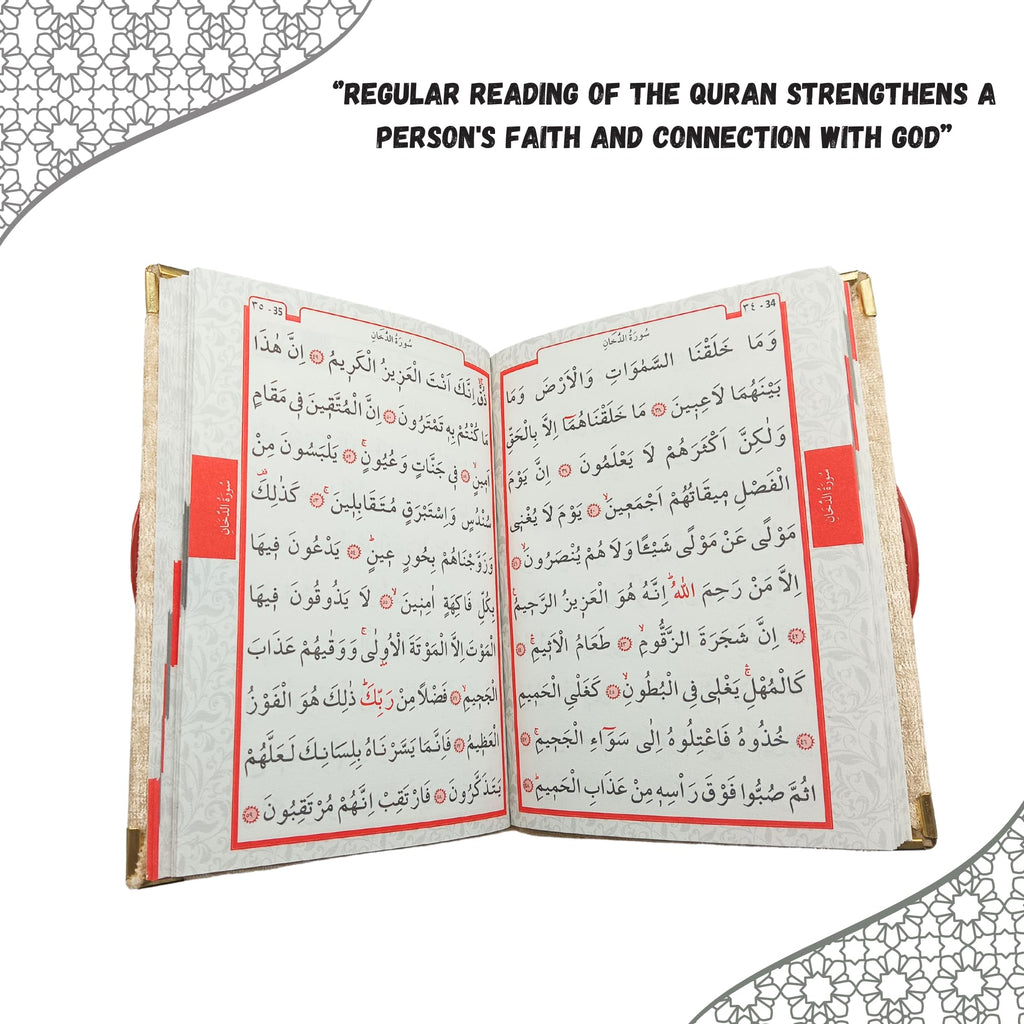 “REGULAR READING OF THE QURAN STRENGTHENS A
PERSON'S FAITH AND CONNECTION WITH GOD”
٣٤ - 34
سُورَةُ الدُّخَانِ
وَمَا خَلَقْنَا السَّمٰوَاتِ وَالْاَرْضَ وَمَا
بَيْنَهُمَا لَاعِب۪ينَ ﴿٣٨﴾ مَا خَلَقْنَاهُمَٓا اِلَّا بِالْحَقِّ
وَلٰكِنَّ اَكْثَرَهُمْ لَا يَعْلَمُونَ ﴿٣٩﴾ اِنَّ يَوْمَ
الْفَصْلِ م۪يقَاتُهُمْ اَجْمَع۪ينَۙ ﴿٤٠﴾ يَوْمَ لَا يُغْن۪ي
مَوْلًى عَنْ مَوْلًى شَيْـًٔا وَلَا هُمْ يُنْصَرُونَۙ ﴿٤١﴾
اِلَّا مَنْ رَحِمَ اللّٰهُۜ اِنَّهُ هُوَ الْعَز۪يزُ الرَّح۪يمُ۟
﴿٤٢﴾ اِنَّ شَجَرَةَ الزَّقُّومِۙ ﴿٤٣﴾ طَعَامُ الْاَث۪يمِۚ ﴿٤٤﴾
كَالْمُهْلِۚ يَغْل۪ي فِي الْبُطُونِۙ ﴿٤٥﴾ كَغَلْيِ الْحَم۪يمِ
﴿٤٦﴾ خُذُوهُ فَاعْتِلُوهُ اِلٰى سَوَٓاءِ الْجَح۪يمِۚ ﴿٤٧﴾
ثُمَّ صُبُّوا فَوْقَ رَاْسِه۪ مِنْ عَذَابِ الْحَم۪يمِۜ ﴿٤٨﴾
سُورَةُ الدُّخَانِ
٣٥ - 35
سُورَةُ الدُّخَانِ
ذُقْۙ اِنَّكَ اَنْتَ الْعَز۪يزُ الْكَر۪يمُ ﴿٤٩﴾ اِنَّ هٰذَا
مَا كُنْتُمْ بِه۪ تَمْتَرُونَ ﴿٥٠﴾ اِنَّ الْمُتَّق۪ينَ ف۪ي مَقَامٍ
اَم۪ينٍۙ ﴿٥١﴾ ف۪ي جَنَّاتٍ وَعُيُونٍۚ ﴿٥٢﴾ يَلْبَسُونَ مِنْ
سُنْدُسٍ وَاِسْتَبْرَقٍ مُتَقَابِل۪ينَۚ ﴿٥٣﴾ كَذٰلِكَ۠
وَزَوَّجْنَاهُمْ بِحُورٍ ع۪ينٍۜ ﴿٥٤﴾ يَدْعُونَ ف۪يهَا
بِكُلِّ فَاكِهَةٍ اٰمِن۪ينَۙ ﴿٥٥﴾ لَا يَذُوقُونَ ف۪يهَا
الْمَوْتَ اِلَّا الْمَوْتَةَ الْاُو۫لٰىۚ وَوَقٰيهُمْ عَذَابَ
الْجَح۪يمِۙ ﴿٥٦﴾ فَضْلًا مِنْ رَبِّكَۜ ذٰلِكَ هُوَ الْفَوْزُ
الْعَظ۪يمُ ﴿٥٧﴾ فَاِنَّمَا يَسَّرْنَاهُ بِلِسَانِكَ لَعَلَّهُمْ
يَتَذَكَّرُونَ ﴿٥٨﴾ فَارْتَقِبْ اِنَّهُمْ مُرْتَقِبُونَ ﴿٥٩﴾
سُورَةُ الدُّخَانِ